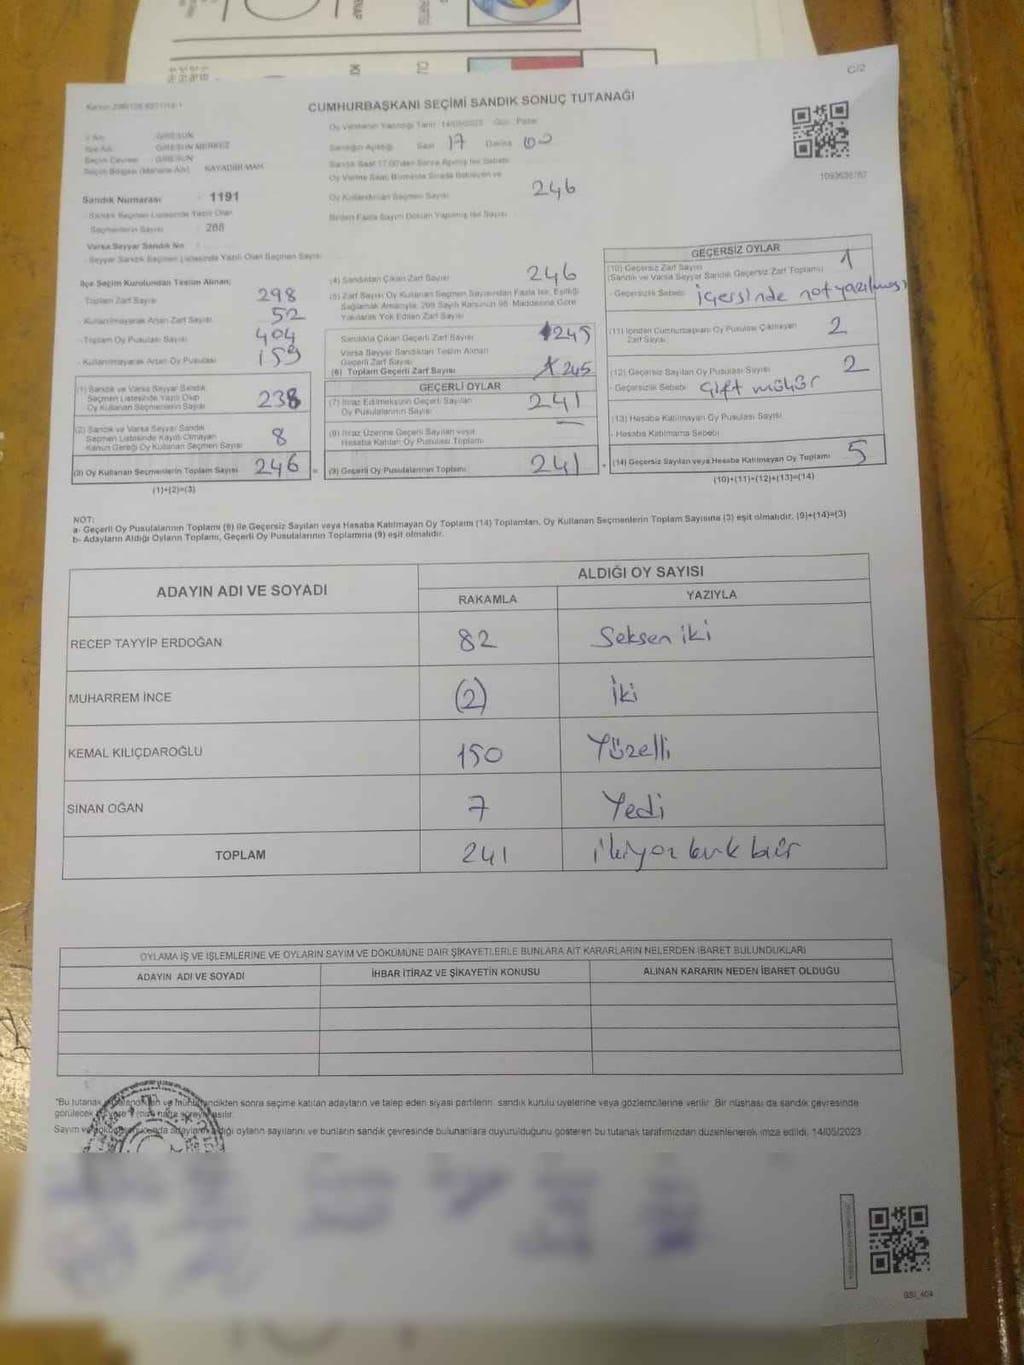 C/2
CUMHURBAŞKANI SEÇİMİ SANDIK SONUÇ TUTANAĞI
Oy Verilen Tarih 14/05/2023 Gün: Pazar
Saat 17 Dakika 00
GİRESUN
GİRESUN MERKEZ
GİRESUN
KAYADİBİ MAH.
Oy Kullandırılan Seçmen Sayısı 246
1093636767
Sandık Numarası : 1191
Sandık Seçmen Listesinde Yazılı Olan
Seçmenlerin Sayısı : 288
Varsa Seyyar Sandık No
Seyyar Sandık Seçmen Listesinde Yazılı Olan Seçmen Sayısı
İlçe Seçim Kurulundan Teslim Alınan;
Toplam Zarf Sayısı 298
- Kullanılmayarak Artan Zarf Sayısı 52
- Toplam Oy Pusulası Sayısı 404
- Kullanılmayarak Artan Oy Pusulası 159
(1) Sandık ve Varsa Seyyar Sandık
Seçmen Listesinde Yazılı Olup
Oy Kullanan Seçmenlerin Sayısı 238
(2) Sandık ve Varsa Seyyar Sandık
Seçmen Listesinde Kayıtlı Olmayan
Kanun Gereği Oy Kullanan Seçmen Sayısı 8
(3) Oy Kullanan Seçmenlerin Toplam Sayısı 246 =
(1)+(2)=(3)
(4) Sandıktan Çıkan Zarf Sayısı 246
(5) Zarf Sayısı Oy Kullanan Seçmen Sayısından Fazla İse, Eşitliği
Sağlamak Amacıyla, 298 Sayılı Kanunun 98. Maddesine Göre
Yakılarak Yok Edilen Zarf Sayısı
Sandıkta Çıkan Geçerli Zarf Sayısı 245
Varsa Seyyar Sandıktan Teslim Alınan
Geçerli Zarf Sayısı
(6) Toplam Geçerli Zarf Sayısı 245
GEÇERLİ OYLAR
(7) İtiraz Edilmeksizin Geçerli Sayılan
Oy Pusulalarının Sayısı 241
(8) İtiraz Üzerine Geçerli Sayılan veya
Hesaba Katılan Oy Pusulası Toplamı —
(9) Geçerli Oy Pusulalarının Toplamı 241 +
GEÇERSİZ OYLAR
(10) Geçersiz Zarf Sayısı
(Sandık ve Varsa Seyyar Sandık Geçersiz Zarf Toplamı) 1
- Geçersizlik Sebebi: içersinde not yazılması
(11) İçinden Cumhurbaşkanı Oy Pusulası Çıkmayan
Zarf Sayısı 2
(12) Geçersiz Sayılan Oy Pusulası Sayısı 2
- Geçersizlik Sebebi çift mühür
(13) Hesaba Katılmayan Oy Pusulası Sayısı
- Hesaba Katılmama Sebebi
(14) Geçersiz Sayılan veya Hesaba Katılmayan Oy Toplamı 5
(10)+(11)+(12)+(13)=(14)
NOT:
a- Geçerli Oy Pusulalarının Toplamı (9) ile Geçersiz Sayılan veya Hesaba Katılmayan Oy Toplamı (14) Toplamları, Oy Kullanan Seçmenlerin Toplam Sayısına (3) eşit olmalıdır. (9)+(14)=(3)
b- Adayların Aldığı Oyların Toplamı, Geçerli Oy Pusulalarının Toplamına (9) eşit olmalıdır.
ADAYIN ADI VE SOYADI
ALDIĞI OY SAYISI
RAKAMLA YAZIYLA
RECEP TAYYİP ERDOĞAN 82 Seksen iki
MUHARREM İNCE (2) İki
KEMAL KILIÇDAROĞLU 150 Yüzelli
SİNAN OĞAN 7 Yedi
TOPLAM 241 ikiyüz kırk bir
OYLAMA İŞ VE İŞLEMLERİNE VE OYLARIN SAYIM VE DÖKÜMÜNE DAİR ŞİKAYETLERLE BUNLARA AİT KARARLARIN NELERDEN İBARET BULUNDUKLARI
ADAYIN ADI VE SOYADI İHBAR İTİRAZ VE ŞİKAYETİN KONUSU ALINAN KARARIN NEDEN İBARET OLDUĞU
"Bu tutanak sonra seçime katılan adayların ve talep eden siyasi partilerin sandık kurulu üyelerine veya gözlemcilerine verilir. Bir nüshası da sandık çevresinde
görülecek
Sayım ve oyların sayılarını ve bunların sandık çevresinde bulunanlara duyurulduğunu gösteren bu tutanak tarafımızdan düzenlenerek imza edildi. 14/05/2023